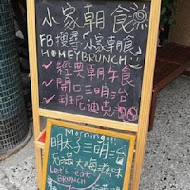 小家朝食
FB搜尋:小家朝食
HOMEYBRUNCH
✓經典朝午食
✓開口三明治
✓班尼迪克
Morning
明太子三明治
Let's eat
BRUNCH